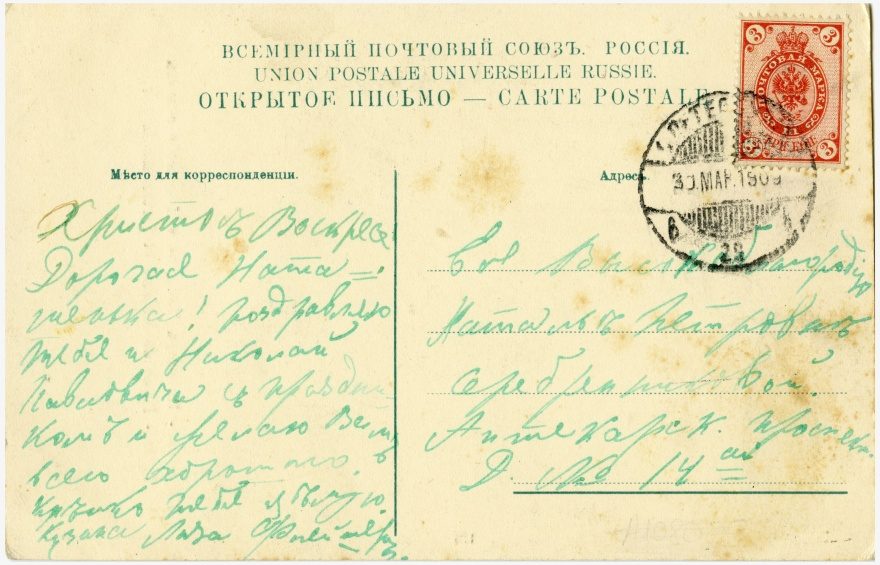 ВСЕМІРНЫЙ ПОЧТОВЫЙ СОЮЗЪ. РОССІЯ.
UNION POSTALE UNIVERSELLE RUSSIE.
ОТКРЫТОЕ ПИСЬМО — CARTE POSTALE
3 3
ПОЧТОВАЯ МАРКА
3 3
30.МАР.1909
Мѣсто для корреспонденціи.
Адресъ.
Христосъ Воскресе
Дорогая Ната-
шенька! поздравляю
тебя и Николай
Павловича съ праздни
комъ и желаю Вамъ
всего
тебя цѣлую.
Лиза
Ея Высокоблагородію
Натальѣ Петровнѣ
Серебренниковой
Аптекарск. проспек.
Д. № 14 ый